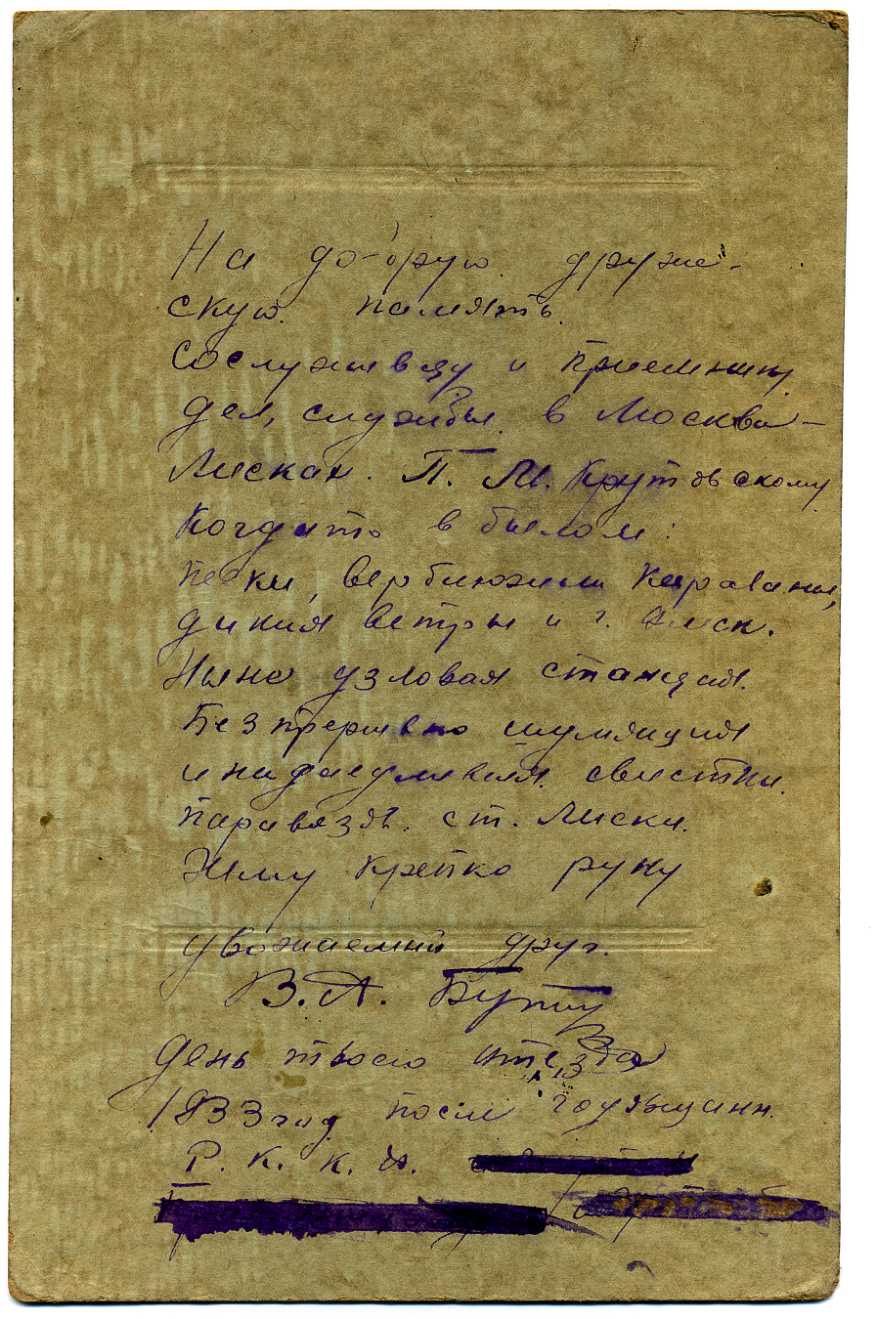 На до-брую друже-
скую память.
Сослуживцу и приемнику
дел, службы в Москва-
Лисках. П. М. Крутовскому
Когдато в былом:
пески, верблюжьи караваны,
дикия ветры и г.
Ныне узловая станция.
Безпрерывно шумящия
свистки
ст. Лиски.
Жму крепко руку
уважаемый друг.
В. А.
День твоего
1933 год после
Р. К. К. А.